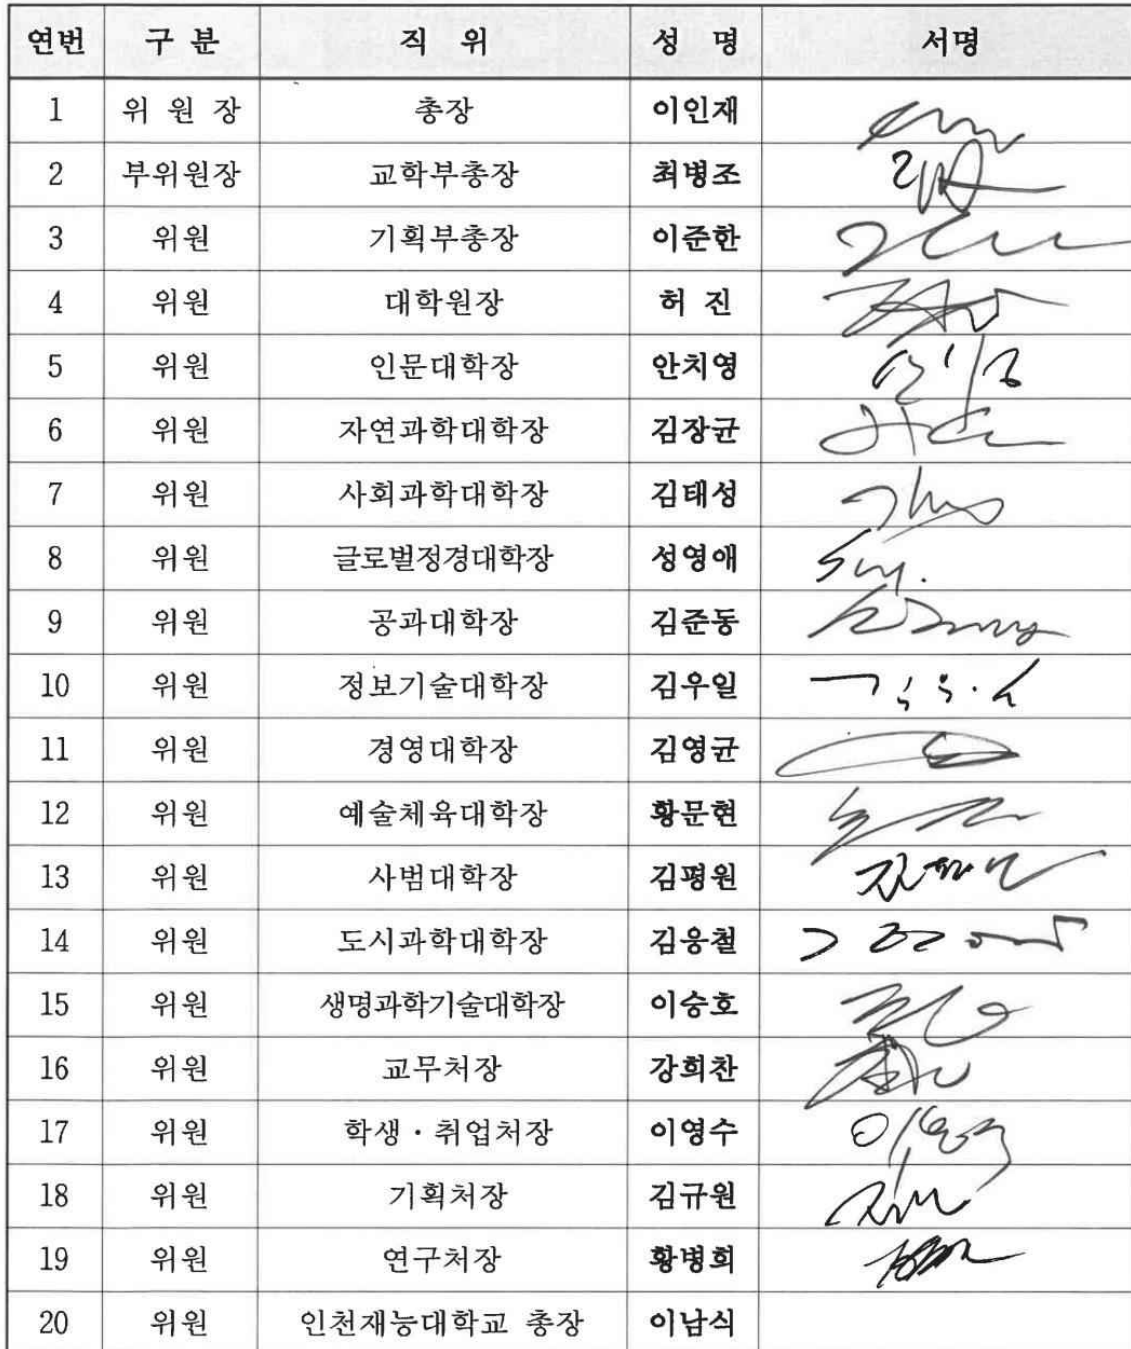 연번 구 분 직 위 성 명 서명
1 위 원 장 총장 이인재
2 부위원장 교학부총장 최병조
3 위원 기획부총장 이준한
4 위원 대학원장 허 진
5 위원 인문대학장 안치영
6 위원 자연과학대학장 김장균
7 위원 사회과학대학장 김태성
8 위원 글로벌정경대학장 성영애
9 위원 공과대학장 김준동
10 위원 정보기술대학장 김우일
11 위원 경영대학장 김영균
12 위원 예술체육대학장 황문현
13 위원 사범대학장 김평원
14 위원 도시과학대학장 김웅철
15 위원 생명과학기술대학장 이승호
16 위원 교무처장 강희찬
17 위원 학생·취업처장 이영수
18 위원 기획처장 김규원
19 위원 연구처장 황병희
20 위원 인천재능대학교 총장 이남식